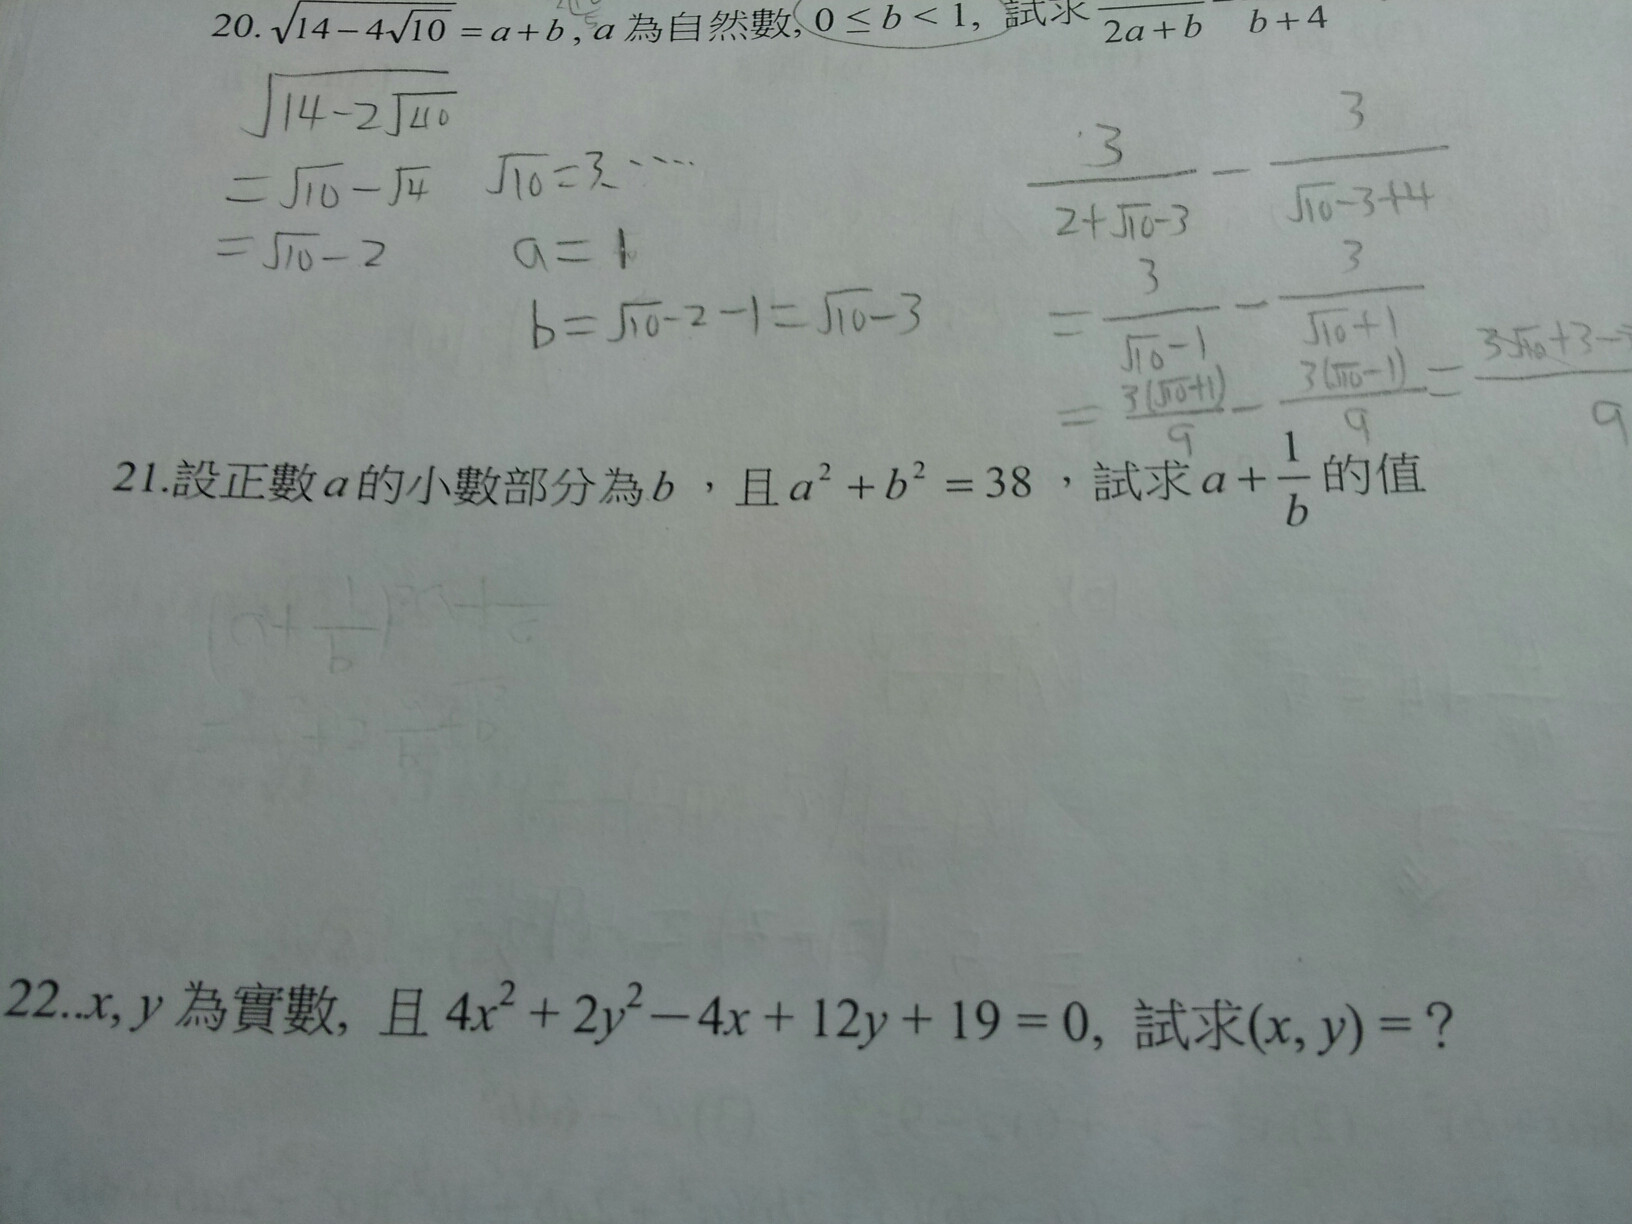 20. √(14−4√10) = a+b, a 為自然數, 0 ≤ b < 1, 試求 /(2a+b) − /(b+4)
√(14−2√40)
= √10 − √4
= √10 − 2
√10 = 3.....
a = 1
b = √10−2−1 = √10−3
3/(2+√10−3) − 3/(√10−3+4)
= 3/(√10−1) − 3/(√10+1)
= 3(√10+1)/9 − 3(√10−1)/9 = 3√10+3−/9
21.設正數a的小數部分為b，且a²+b²=38，試求a+1/b的值
22..x, y 為實數, 且 4x²+2y²−4x+12y+19=0, 試求(x, y)=?